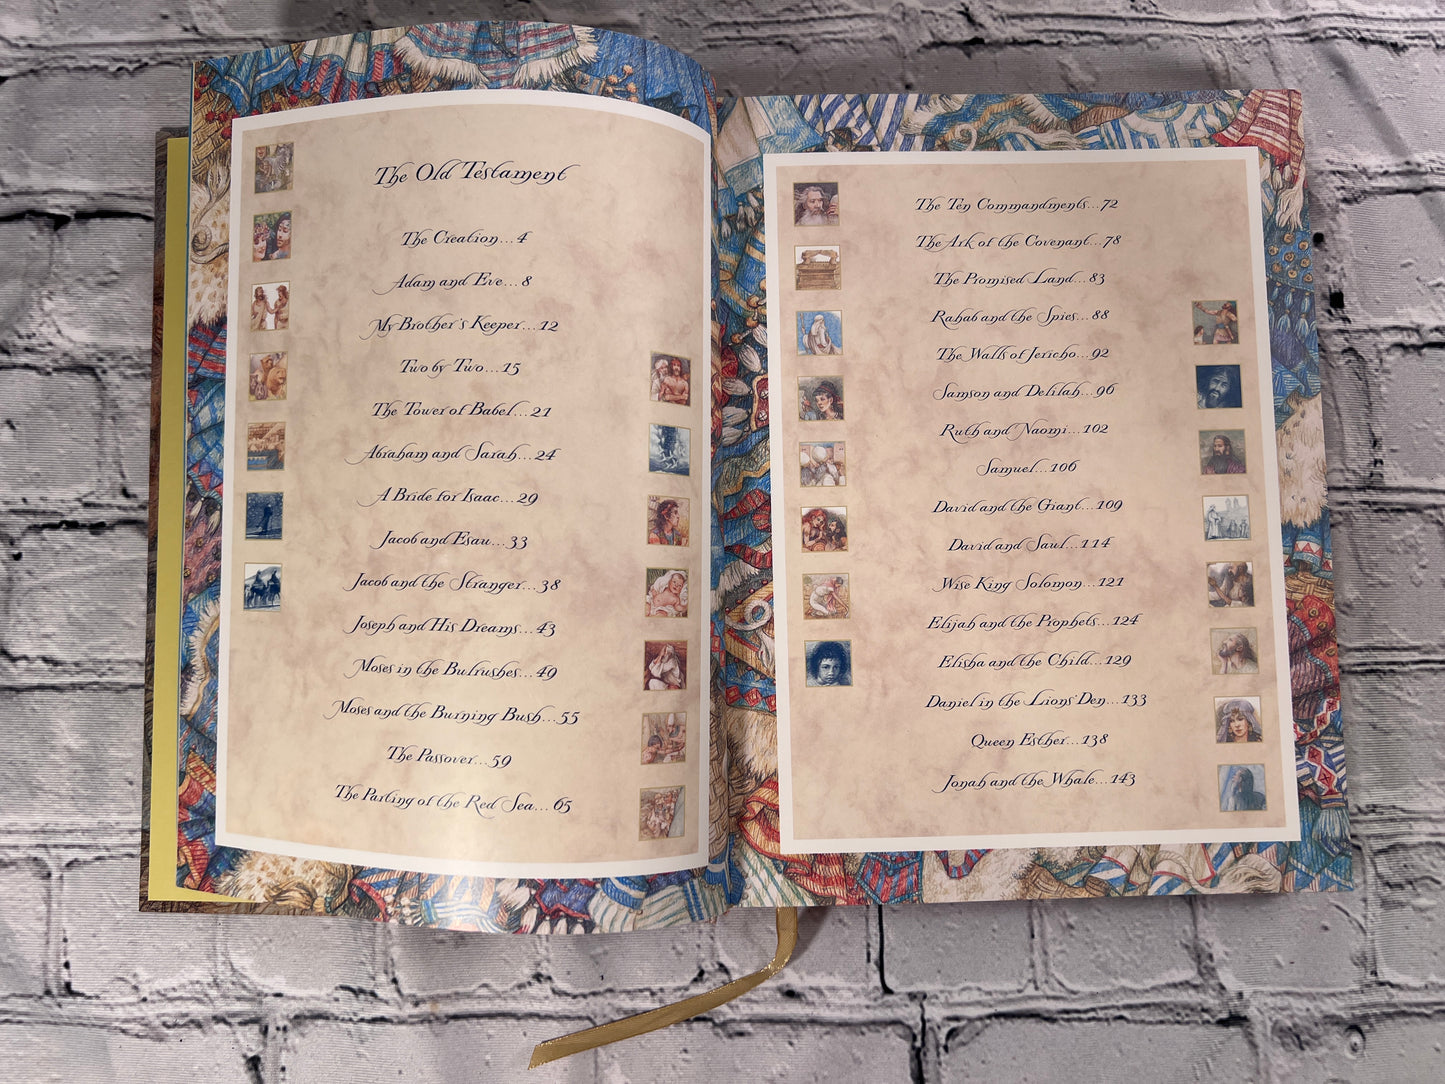 The Old Testament
The Creation...4
Adam and Eve...8
My Brother's Keeper...12
Two by Two...15
The Tower of Babel...21
Abraham and Sarah...24
A Bride for Isaac...29
Jacob and Esau...33
Jacob and the Stranger...38
Joseph and His Dreams...43
Moses in the Bulrushes...49
Moses and the Burning Bush...55
The Passover...59
The Parting of the Red Sea...65
The Ten Commandments...72
The Ark of the Covenant...78
The Promised Land...83
Rahab and the Spies...88
The Walls of Jericho...92
Samson and Delilah...96
Ruth and Naomi...102
Samuel...106
David and the Giant...109
David and Saul...114
Wise King Solomon...121
Elijah and the Prophets...124
Elisha and the Child...129
Daniel in the Lions' Den...133
Queen Esther...138
Jonah and the Whale...143